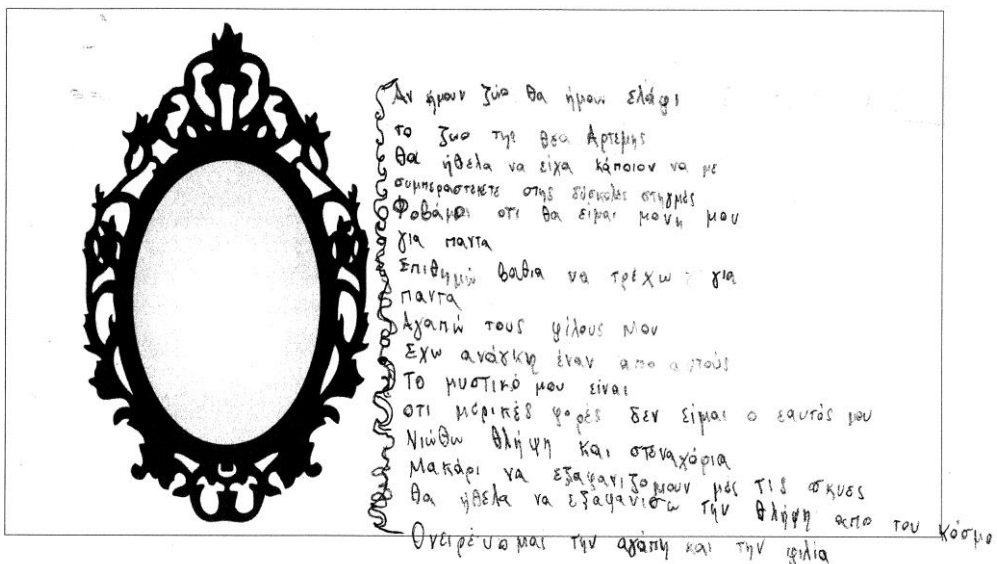 Αν ήμουν ζώο θα ήμουν ελάφι
το ζωο της θεα Αρτεμης
θα ήθελα να είχα κάποιον να με
συμπεραστεκετε στης δύσκολες στηγμές
Φοβάμαι οτι θα είμαι μονη μου
για παντα
Επιθημώ βαθια να τρέχω για
παντα
Αγαπώ τους φίλους μου
Εχω ανάγκη έναν απο αυτούς
Το μυστικό μου είναι
οτι μερικές φορές δεν είμαι ο εαυτός μου
Νιώθω θλήψη και στεναχόρια
Μακάρι να εξαφανιζομουν μες τις σκυες
θα ήθελα να εξαφανισω την θλήψη απο του κόσμο
Ονειρέυωμαι την αγάπη και την φιλία